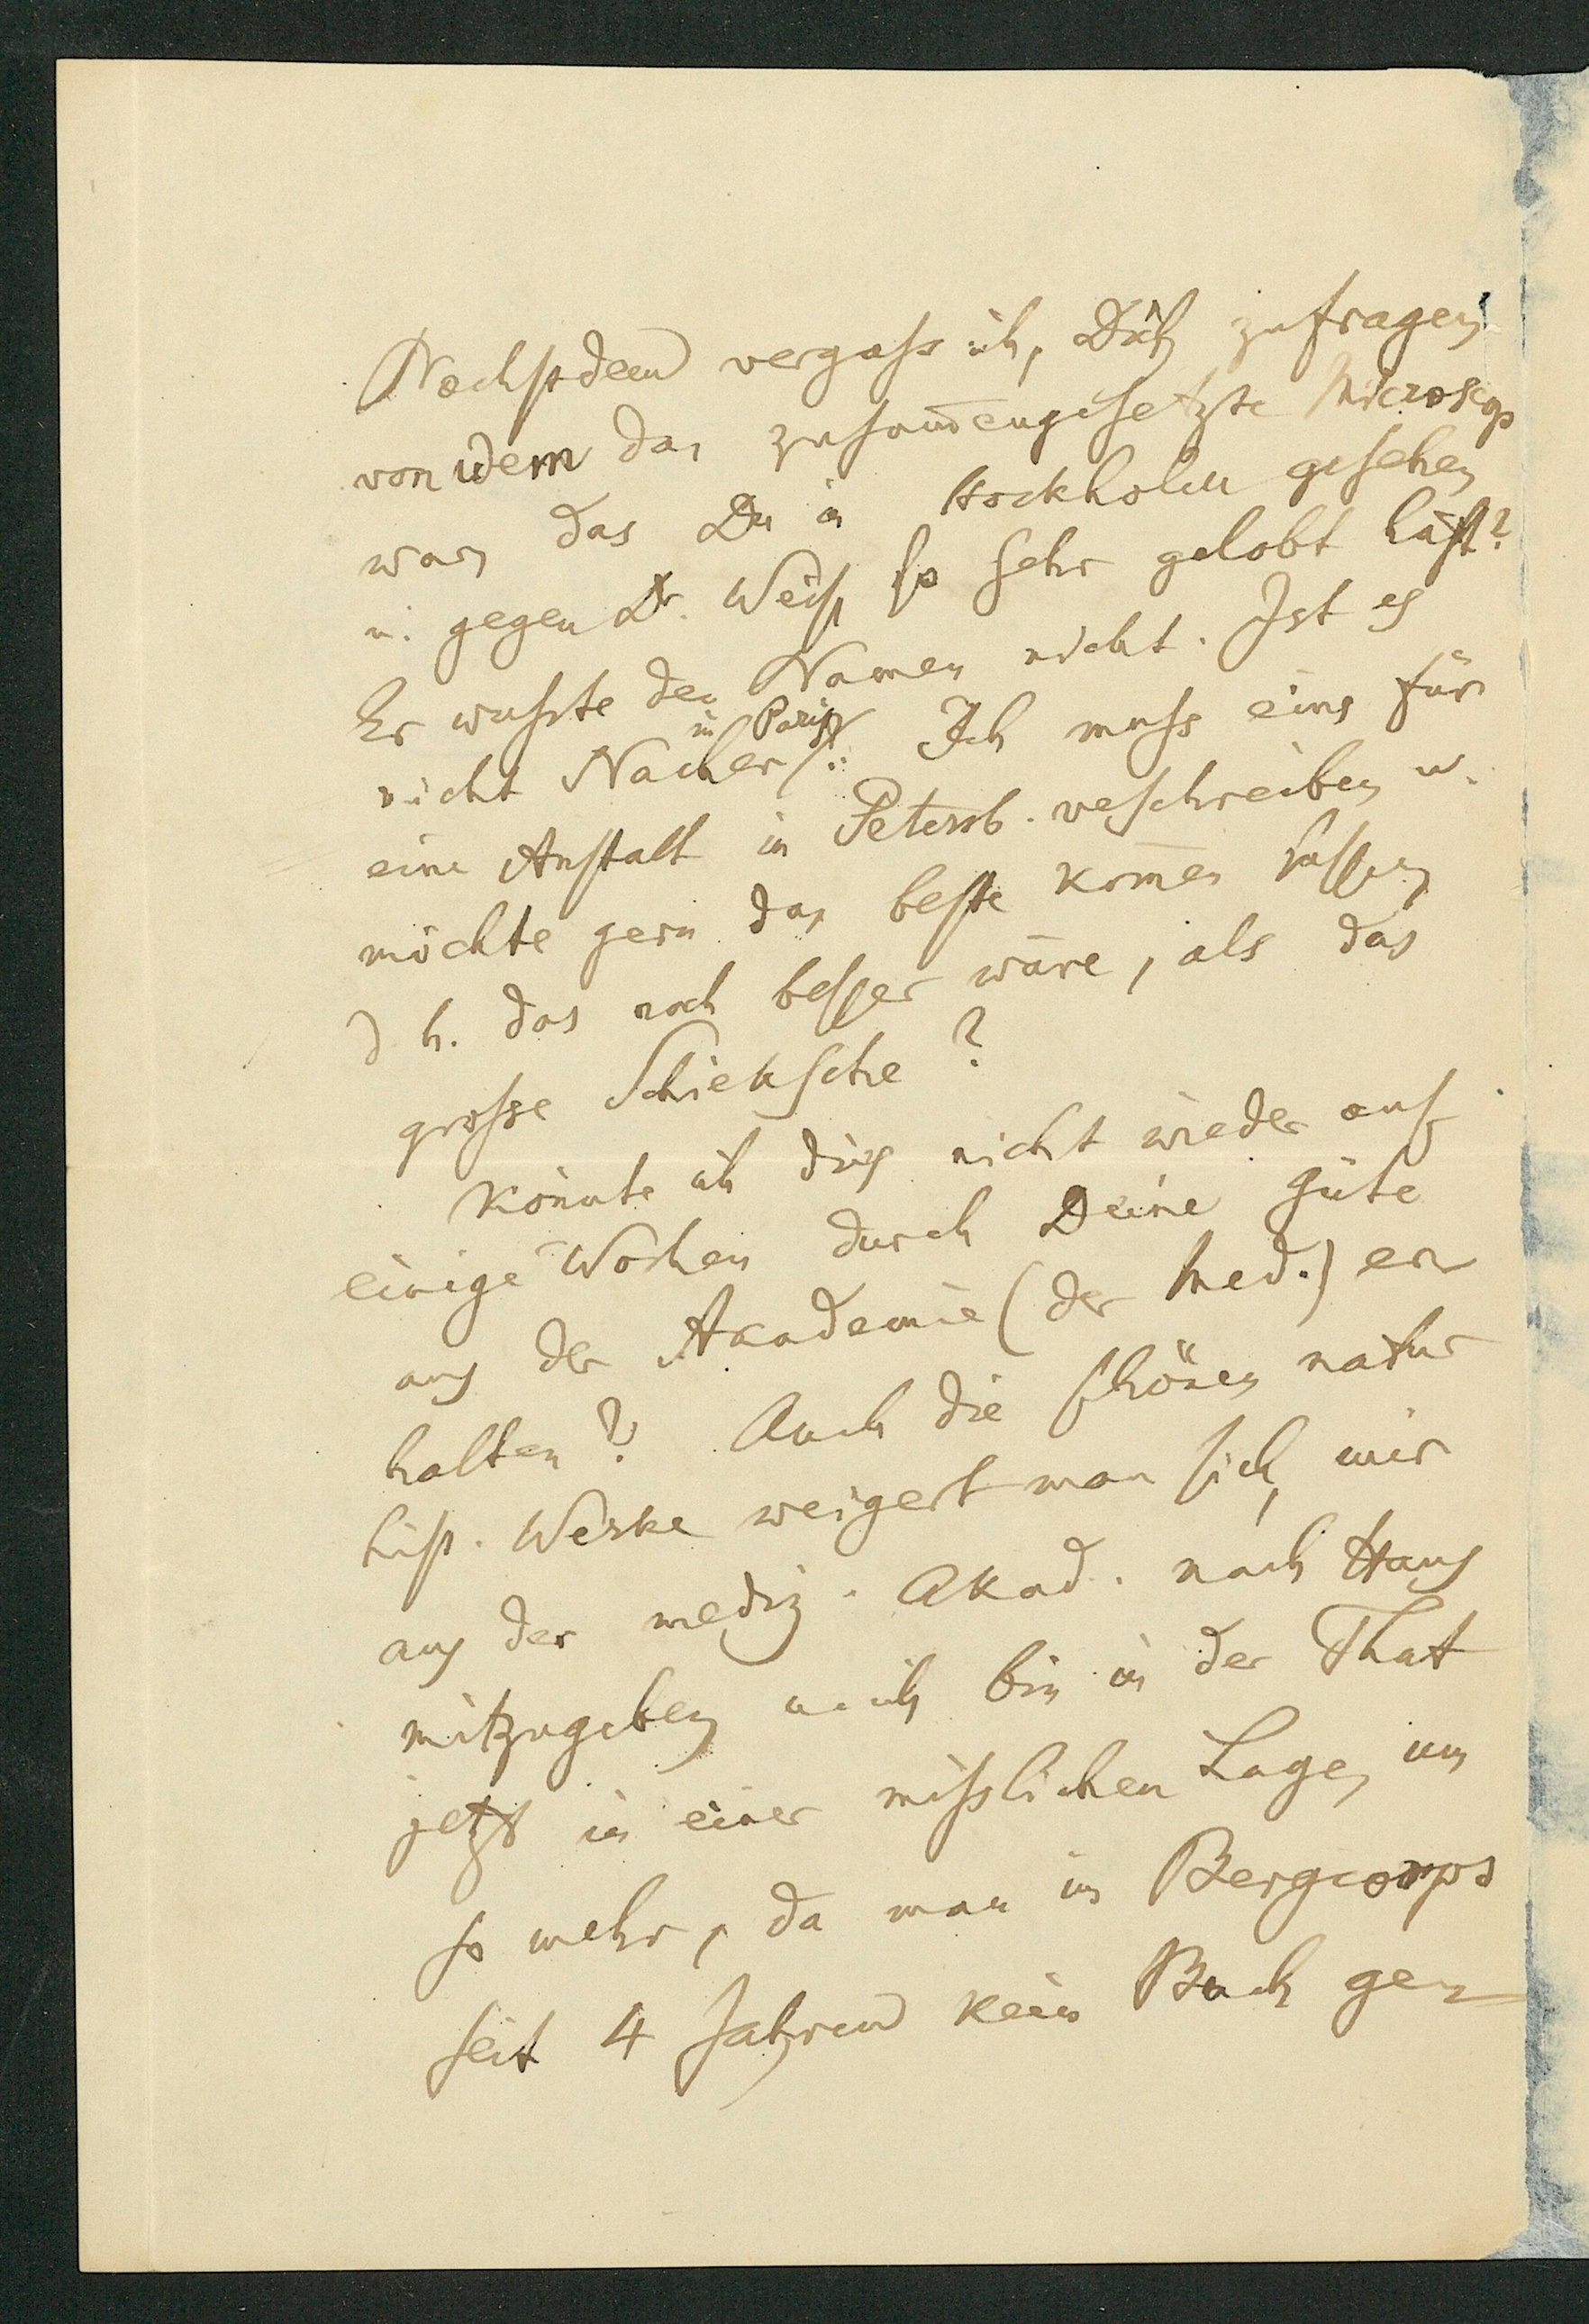 Nächstdem vergaß ich, Dich zu fragen
von wem das zusam̅engesetzte Microscop
war, das Du in Stockholm gesehen
u. gegen Dr. Weiße so sehr gelobt hast?
Er wußte den Namen nicht. Ist es
in Paris
nicht Nachet? Ich muß eins für
eine Anstalt in Petersb. veschreiben u.
möchte gern das beste kom̅en lassen
d h. das noch besser wäre, als das
große Schieksche?
Könnte ich dies nicht wieder auf
einige Wochen durch Deine Güte
aus der Akademie (der Med.) er
halten? Auch die schönen natur
hist. Werke weigert man sich, mir
aus der mediz. Akad. nach Haus
mitzugeben u. ich bin in der That
jetzt in einer mißlichen Lage, um
so mehr, da man im Bergcorps
seit 4 Jahren kein Buch gen